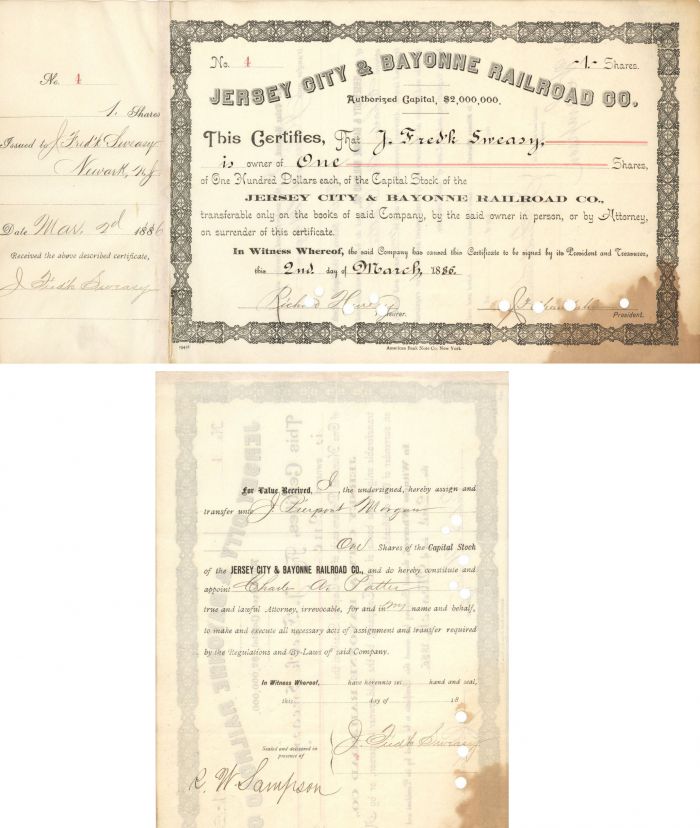 No. 4
1. Shares
Issued to J. Fred'k Sweasy
Newark, N.J.
Date Mar. 2d 1886
Received the above described certificate,
J. Fred'k Sweasy
No. 4
-1- Shares.
JERSEY CITY & BAYONNE RAILROAD CO.
Authorized Capital, $2,000,000.
This Certifies, That J. Fred'k Sweasy,
is owner of One Shares,
of One Hundred Dollars each, of the Capital Stock of the
JERSEY CITY & BAYONNE RAILROAD CO.,
transferable only on the books of said Company, by the said owner in person, or by Attorney,
on surrender of this certificate.
In Witness Whereof, the said Company has caused this Certificate to be signed by its President and Treasurer,
this 2nd day of March, 1886.
Richard
President.
American Bank Note Co. New York.
For Value Received, I, the undersigned, hereby assign and
transfer unto J. Pierpont Morgan
One Shares of the Capital Stock
of the JERSEY CITY & BAYONNE RAILROAD CO., and do hereby constitute and
appoint Charles A. Potter
true and lawful Attorney, irrevocable, for and in my name and behalf,
to make and execute all necessary acts of assignment and transfer required
by the Regulations and By-Laws of said Company.
In Witness Whereof, have hereunto set hand and seal,
this day of 18
Sealed and delivered in
presence of
J. Fred'k Sweasy
R. W. Sampson